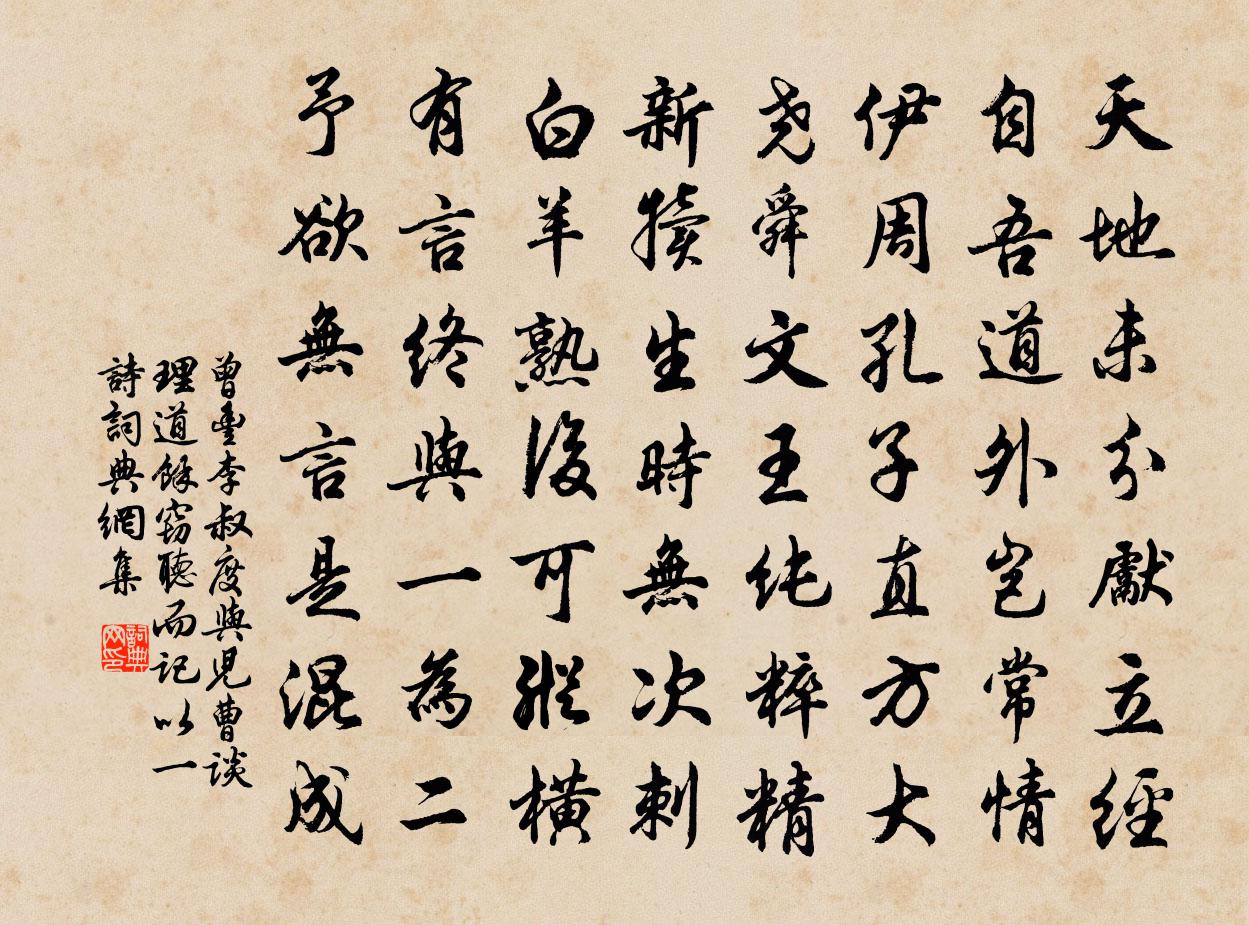 天地未分獻立經
自吾道外豈常情
伊周孔子直方大
堯舜文王純粹精
新犢生時無次刺
白羊熟後可縱橫
有言終與一為二
予欲無言是混成
曾豐李叔度與兒曹談
理道餘竊聽而記以一
詩詞典網集
詞典
网印